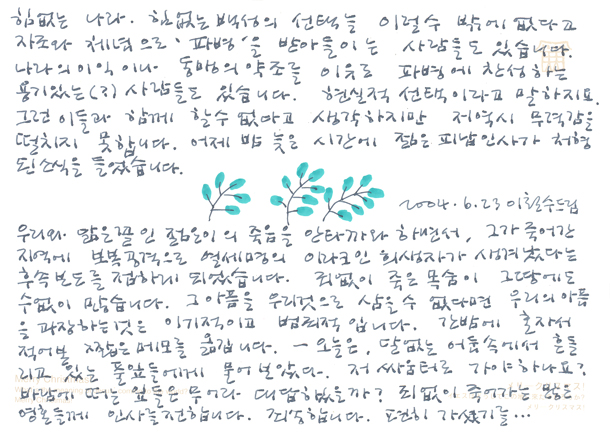 힘없는 나라. 힘없는 백성의 선택을 이럴수 밖에 없다고
자조와 체념으로 '파병'을 받아들이는 사람들도 있습니다.
나라의 이익이나 동맹의 약조를 이유로 파병에 찬성하는
용기있는(?) 사람들도 있습니다. 현실적 선택이라고 말하지요.
그런 이들과 함께 할수 없다고 생각하지만 저역시 무력감을
떨치지 못합니다. 어제 밤 늦은 시간에 젊은 피납인사가 처형
된 소식을 들었습니다.
2004.6.23 이철수드림
우리와 닮은꼴인 젊은이의 죽음을 안타까와 하면서, 그가 죽어간
지역에 보복공격으로 열세명의 이라크인 희생자가 생겨났다는
후속보도를 접하게 되었습니다. 죄없이 죽은 목숨이 그땅에도
수없이 많습니다. 그 아픔을 우리것으로 삼을 수 없다면 우리의 아픔
을 과장하는것은 이기적이고 범죄적입니다. 간밤에 혼자서
적어본 짧은 메모를 옮깁니다. — 오늘은, 달없는 어둠속에서 흔들
리고 있는 풀잎들에게 물어보았다. 저 싸움터로 가야하나요?
바람에 떠는 잎들은 무어라 대답했을까? 죄없이 죽어가는 많은
영혼들께 인사를 전합니다. 죄송합니다. 편히 가셨기를...